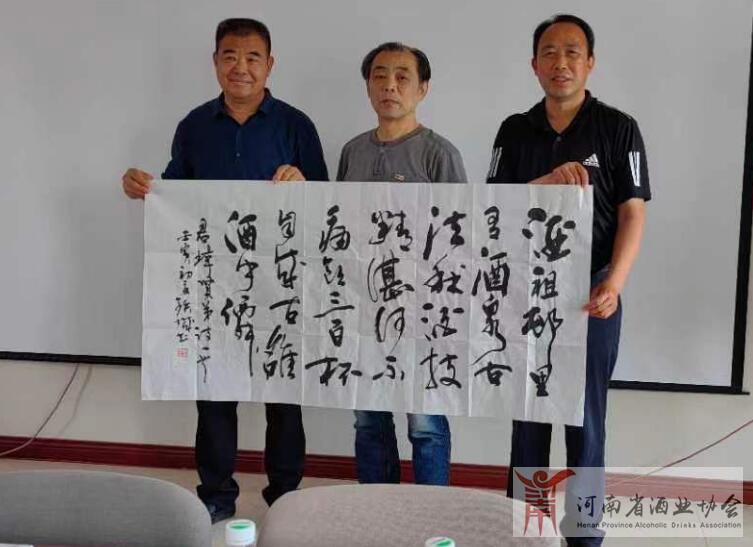 酒祖邨里
有酒泉古
法酒技
精湛何不
痛饮三百杯
自成古
酒中僊
贤弟诗一首
壬寅初夏书
adidas
河南省酒业协会
Henan Province Alcoholic Drinks Association